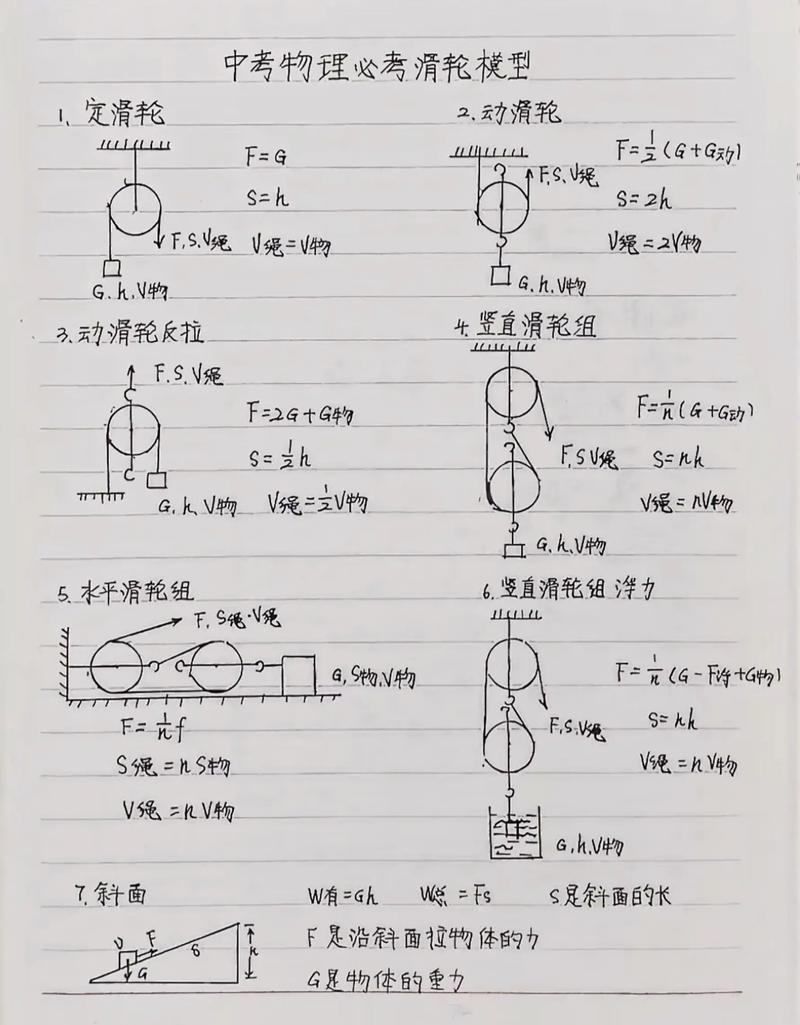 中考物理必考滑轮模型
1、定滑轮
F=G
S=h
F.S.V绳 V绳=V物
G.h.V物
2.动滑轮
F=1/2(G+G动)
F.S.V绳
S=2h
V绳=2V物
G.h.V物
3.动滑轮反拉
F.S.V绳
F=2G+G物
S=1/2h
G.h.V物 V绳=1/2V物
4.竖直滑轮组
F=1/n(G+G动)
F.S V绳 S=nh
V绳=nV物
G.h.V物
5.水平滑轮组
F.S绳.V绳
G.S物.V物
F=1/n f
S绳=nS物
V绳=nV物
6.竖直滑轮组 浮力
F=1/n(G-F浮+G物)
F.S.V绳 S=nh
V绳=nV物
G.h.V物
7.斜面 W有=Gh W总=Fs S是斜面的长
F S h
G
F是沿斜面拉物体的力
G是物体的重力